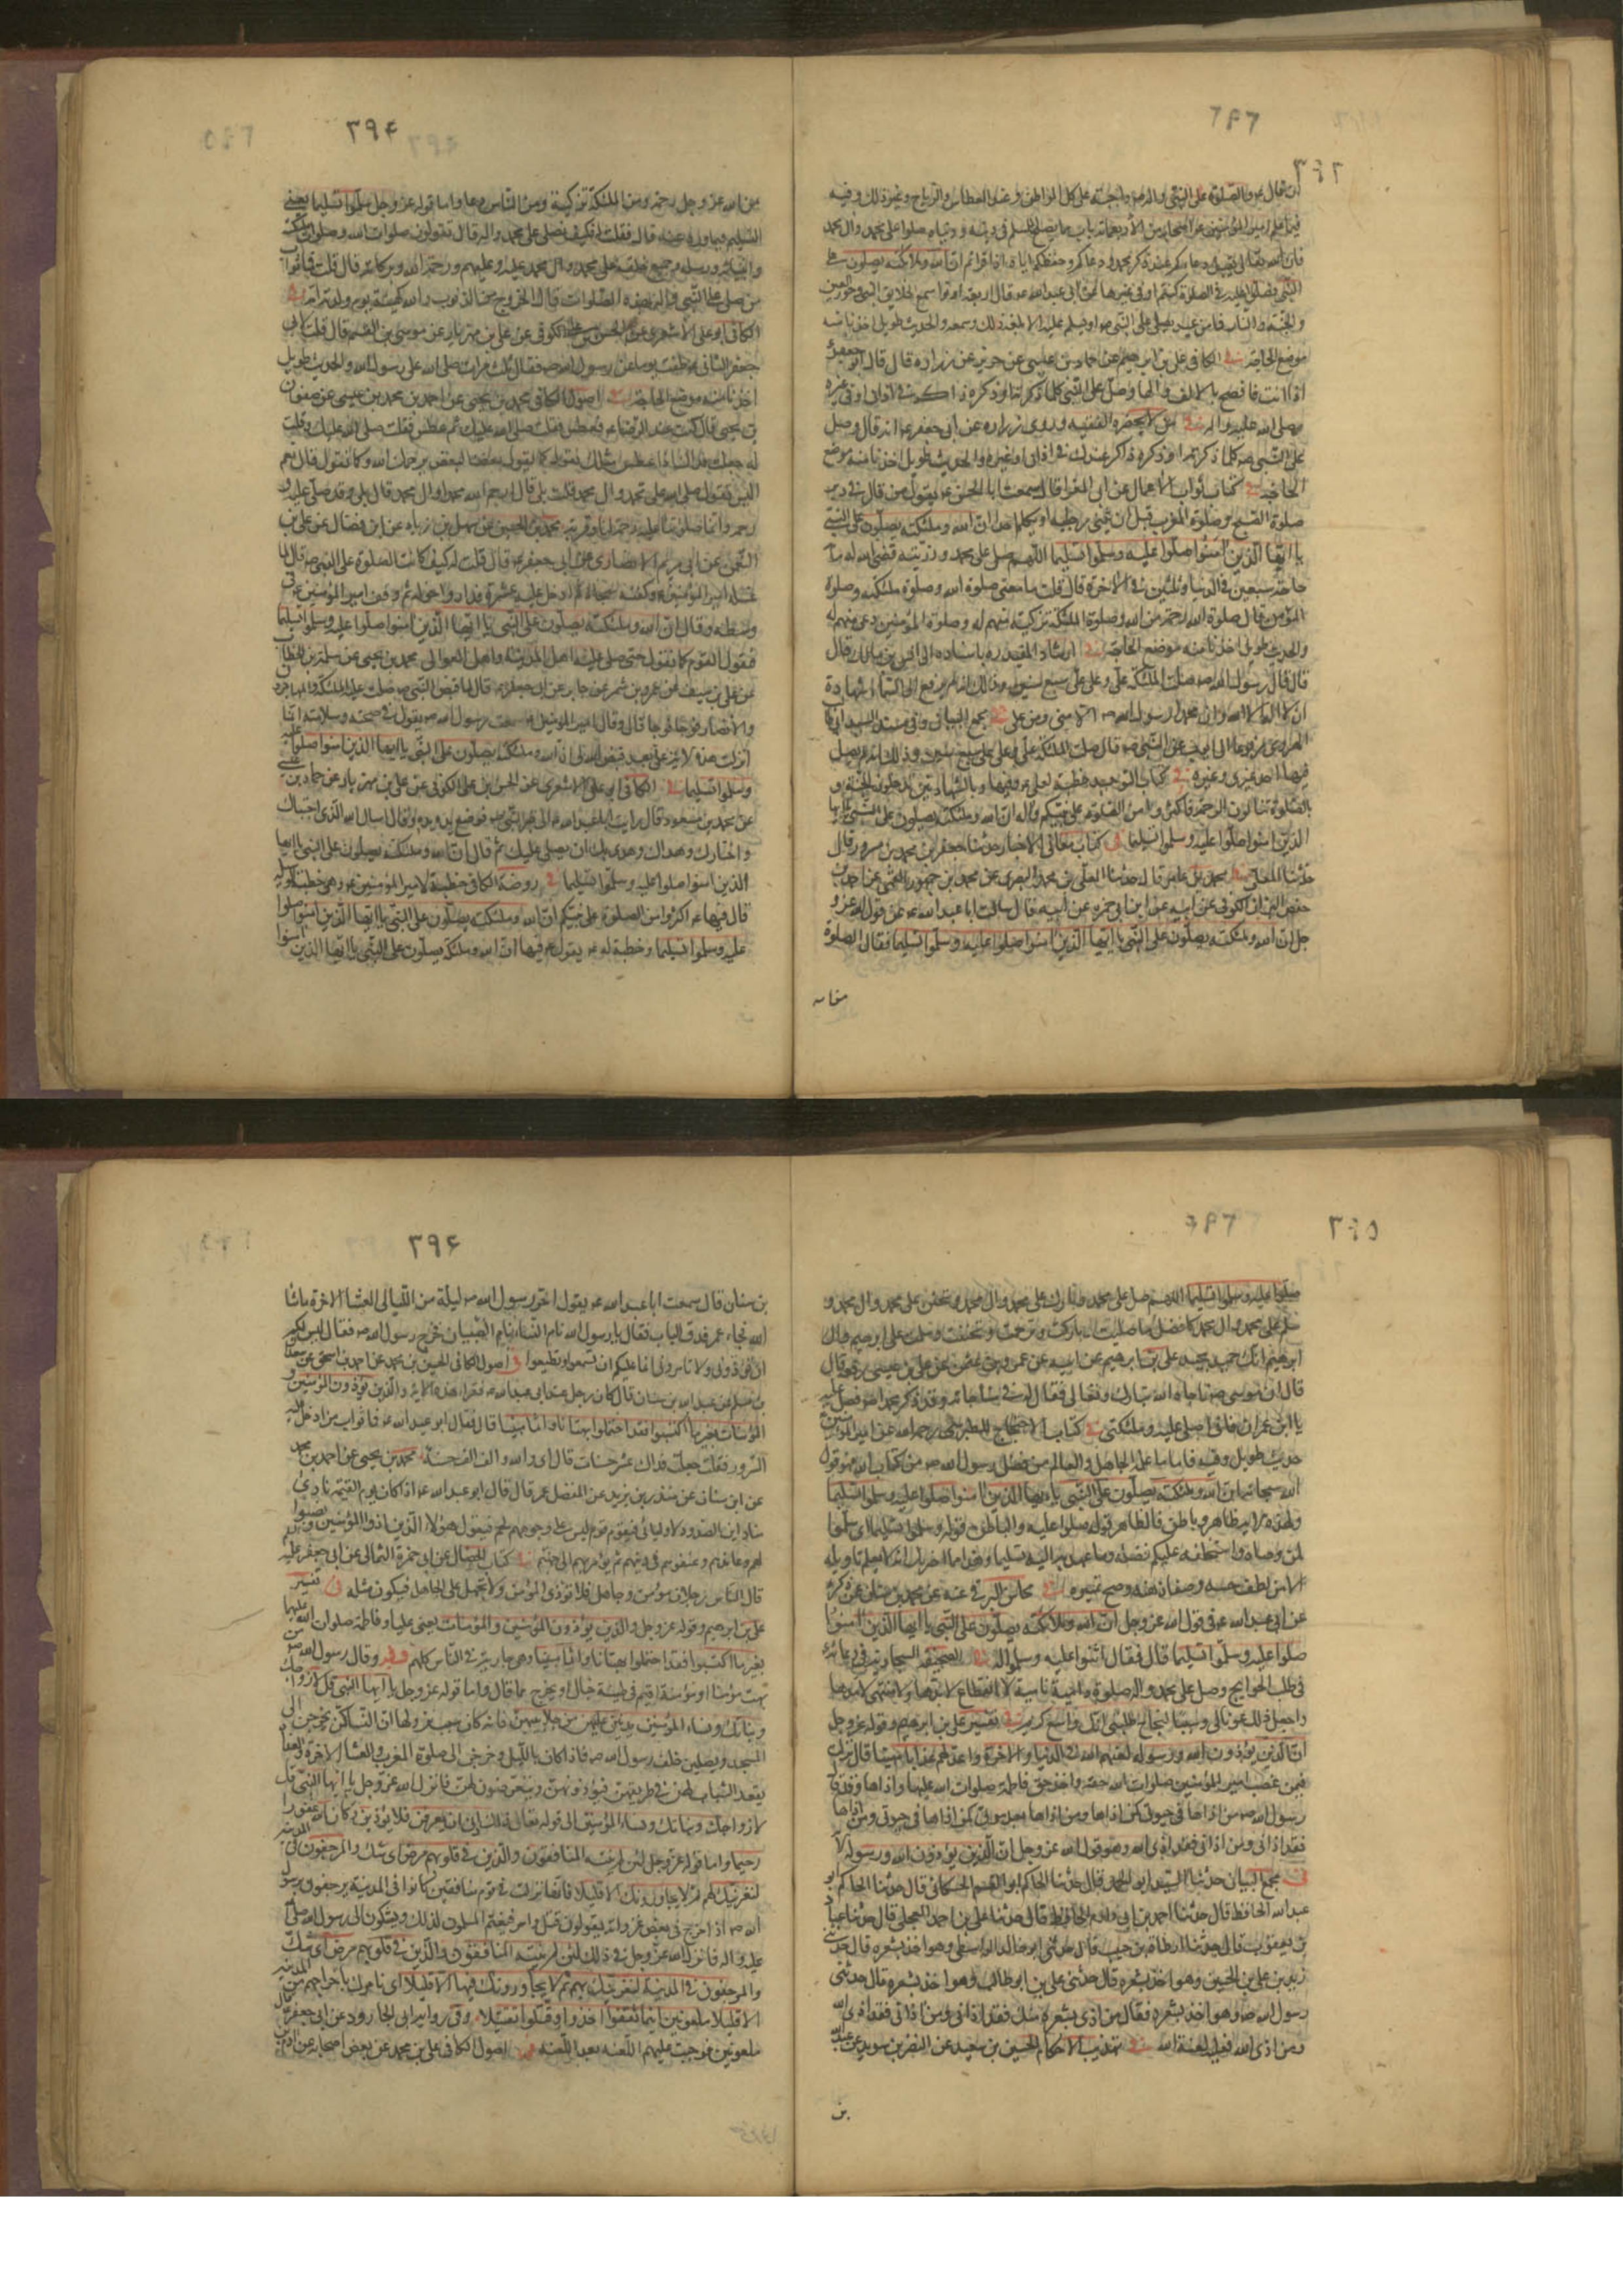 ٣٩٣
ان قال ع والصلوة على النبي واله واجبة على كل المواطن وعند العطاس والرياح وغير ذلك وفيه
فيما علم امير المؤمنين ع اصحابه من الأربعمائة باب مما يصلح للمسلم في دينه ودنياه صلوا على محمد وال محمد
فان الله تعالى يقبل دعاءكم عند ذكر محمد ودعاءكم وحفظكم اياه اذا قرأتم ان الله وملائكته يصلون على
النبي فصلوا عليه في الصلوة كنتم او في غيرها عن ابي عبد الله ع قال اربعة اوتوا سمع الخلايق النبي وحور العين
والجنة والنار فما من عبد يصلي على النبي ص او يسلم عليه الا بلغه ذلك وسمعه والحديث طويل اخذنا منه
موضع الحاجة في الكافي علي بن ابرهيم عن حماد بن عيسى عن حريز عن زرارة قال قال ابو جعفر ع
اذا اذنت فافصح بالالف والهاء وصل على النبي كلما ذكرته او ذكره ذاكر في اذان او في غيره
صلى الله عليه واله في من لا يحضره الفقيه وروى زرارة عن ابي جعفر ع انه قال وصل
على النبي ص كلما ذكرته او ذكره ذاكر عندك في اذان او غيره والحديث طويل اخذنا منه موضع
الحاجة في كتاب ثواب الاعمال عن ابي المغرا قال سمعت ابا الحسن ع يقول من قال في دبر
صلوة الصبح وصلوة المغرب قبل ان يثني رجليه او يكلم احدا ان الله وملئكته يصلون على النبي
يا ايها الذين امنوا صلوا عليه وسلموا تسليما اللهم صل على محمد وذريته قضى الله له مأة
حاجة سبعين في الدنيا وثلثين في الاخرة قال قلت ما معنى صلوة الله وصلوة ملئكته وصلوة
المؤمن قال صلوة الله رحمة من الله وصلوة الملئكة تزكية منهم له وصلوة المؤمنين دعى منهم له
والحديث طويل اخذنا منه موضع الحاجة في ارشاد المفيد ره باسناده الى انس بن مالك قال
قال قال رسول الله ص صلت الملئكة علي وعلى علي سبع سنين وذلك انه لم يرفع الى السماء شهادة
ان لا اله الا الله وان محمدا رسول الله ص الا مني ومن علي في مجمع البيان وفي مسند السيد ابي طا
الهروي مرفوعا الى ايوب عن النبي ص قال صلت الملئكة علي وعلى علي سبع سنين وذلك انه لم يصل
فيها احد غيري وغيره في كتاب التوحيد خطبة لعلي ع وفيها وبالشهادتين تدخلون الجنة و
بالصلوة تنالون الرحمة فاكثروا من الصلوة على نبيكم واله ان الله وملئكته يصلون على النبي يا ايها
الذين امنوا صلوا عليه وسلموا تسليما في كتاب معاني الاخبار حدثنا جعفر بن محمد بن مسرور قال
حدثنا المعلى محمد بن عامر قال حدثنا المعلى بن محمد البصري عن محمد بن جمهور القمي عن احمد بن
حفص البزاز الكوفي عن ابيه عن ابن ابي حمزة عن ابيه قال سالت ابا عبد الله ع عن قول الله عز و
جل ان الله وملئكته يصلون على النبي يا ايها الذين امنوا صلوا عليه وسلموا تسليما فقال الصلوة
٣٩٤
من الله عز وجل رحمة ومن الملئكة تزكية ومن الناس دعا واما قوله عز وجل سلموا تسليما يعني
التسليم فيما ورد عنه قال فقلت له فكيف نصلي على محمد واله قال تقولون صلوات الله وصلوات ملئكته
وانبيائه ورسله وجميع خلقه على محمد وال محمد عليه وعليهم ورحمة الله وبركاته قال قلت فما ثواب
من صلى على النبي واله بهذه الصلوات قال الخروج من الذنوب والله كهيئة يوم ولدته امه في
الكافي ابو علي الاشعري عن الحسن بن علي الكوفي عن علي بن مهزيار عن موسى بن القسم قال قلت لابي
جعفر الثاني ع طفت يوما عن رسول الله ص فقال ثلث مرات صلى الله على رسول الله والحديث طويل
اخذنا منه موضع الحاجة في اصول الكافي محمد بن يحيى عن احمد بن محمد بن عيسى عن صفوان
بن يحيى قال كنت عند الرضا ع فعطس فقلت صلى الله عليك ثم عطس فقلت صلى الله عليك وقلت
له جعلت فداك اذا عطس مثلك نقول كما يقول بعضنا لبعض يرحمك الله وكما نقول قال نعم
اليس تقول صلى الله على محمد وال محمد قلت بلى قال ارحم الله محمدا وال محمد قال بلى وقد صلى عليه و
رحمه وانما صلوتنا عليه رحمة لنا وقربة محمد بن الحسين عن سهل بن زياد عن ابن فضال عن علي بن
النعمن عن ابي مريم الانصاري عن ابي جعفر ع قال قلت له كيف كانت الصلوة على النبي ص قال لما
غسله امير المؤمنين ع وكفنه سجاه ثم ادخل عليه عشرة فداروا حوله ثم وقف امير المؤمنين ع في
وسطهم وقال ان الله وملئكته يصلون على النبي يا ايها الذين امنوا صلوا عليه وسلموا تسليما
فيقول القوم كما يقول حتى صلى عليه اهل المدينة واهل العوالي محمد بن يحيى عن سلمة بن الخطاب
عن علي بن سيف عن عمرو بن شمر عن جابر عن ابي جعفر ع قال لما قبض النبي ص صلت عليه الملئكة والمهاجرون
والانصار فوجا فوجا قال وقال امير المؤمنين ع سمعت رسول الله ص يقول في صحته وسلامته انما
انزلت هذه الاية علي بعد قبض الله لي ان الله وملئكته يصلون على النبي يا ايها الذين امنوا صلوا عليه
وسلموا تسليما في الكافي ابو علي الاشعري عن الحسن بن علي الكوفي عن علي بن مهزيار عن حماد بن عيسى
عن محمد بن مسعود قال رايت ابا عبد الله ع اتى قبر النبي ص فوضع يده عليه وقال اسال الله الذي اجتباك
واختارك وهداك وهدى بك ان يصلي عليك ثم قال ان الله وملئكته يصلون على النبي يا ايها
الذين امنوا صلوا عليه وسلموا تسليما في روضة الكافي خطبة لامير المؤمنين ع وهي خطبة الوسيلة
قال فيها ع اكثروا من الصلوة على نبيكم ان الله وملئكته يصلون على النبي يا ايها الذين امنوا صلوا
عليه وسلموا تسليما وخطبة له ع يقول فيها ان الله وملئكته يصلون على النبي يا ايها الذين امنوا
٣٩٥
صلوا عليه وسلموا تسليما اللهم صل على محمد وبارك على محمد وال محمد وتحنن على محمد وال محمد و
سلم على محمد وال محمد كافضل ما صليت وباركت وترحمت وتحننت وسلمت على ابرهيم وال
ابرهيم انك حميد مجيد علي بن ابرهيم عن ابيه عن عمرو بن عثمن عن علي بن عيسى رفعه قال
قال ان موسى ص ناجاه الله تبارك وتعالى فقال له في مناجاته وقد ذكر محمدا ص فصل عليه
يا ابن عمران فاني اصلي عليه وملئكتي في كتاب الاحتجاج للطبرسي رحمه الله عن امير المؤمنين ع
حديث طويل وفيه فاما ما علمه الجاهل والعالم من فضل رسول الله ص من كتاب الله فهو قول
الله سبحانه ان الله وملئكته يصلون على النبي يا ايها الذين امنوا صلوا عليه وسلموا تسليما
ولهذه الاية ظاهر وباطن فالظاهر قوله صلوا عليه والباطن قوله وسلموا تسليما اي سلموا
لمن وصاه واستخلفه عليكم فضله وما عهد به اليه تسليما وهذا مما اخبرتك انه لا يعلم تاويله
الا من لطف حسه وصفا ذهنه وصح تمييزه في محاسن البرقي عنه عن محمد بن سنان عمن ذكره
عن ابي عبد الله ع في قول الله عز وجل ان الله وملائكته يصلون على النبي يا ايها الذين امنوا
صلوا عليه وسلموا تسليما قال فقال اثنوا عليه وسلموا له في الصحيفة السجادية في دعائه ع
في طلب الحوايج وصل على محمد واله صلوة دائمة نامية لا انقطاع لابدها ولا منتهى لامدها
واجعل ذلك عونا لي وسببا لنجاح طلبتي انك واسع كريم في تفسير علي بن ابرهيم وقوله عز وجل
ان الذين يؤذون الله ورسوله لعنهم الله في الدنيا والاخرة واعد لهم عذابا مهينا قال نزلت
فيمن غصب امير المؤمنين صلوات الله حقه واخذ حق فاطمة صلوات الله عليها واذاها وقد قال
رسول الله ص من اذاها في حيوتي كمن اذاها بعد موتي ومن اذاها بعد موتي كمن اذاها في حيوتي ومن اذاها
فقد اذاني ومن اذاني فقد اذى الله وهو قول الله عز وجل ان الذين يؤذون الله ورسوله لا
في مجمع البيان حدثنا السيد ابو الحمد قال حدثنا الحاكم ابو القسم الحسكاني قال حدثنا الحاكم ابو
عبد الله الحافظ قال حدثنا احمد بن ابي دارم الحافظ قال حدثنا علي بن احمد العجلي قال حدثنا عباد
بن يعقوب قال حدثنا ارطاة بن حبيب قال حدثني ابو خالد الواسطي وهو اخذ بشعره قال حدثني
زيد بن علي بن الحسين وهو اخذ بشعره قال حدثني علي بن ابو طالب وهو اخذ بشعره قال حدثني
رسول الله ص وهو اخذ بشعره فقال من اذى بشعرة منك فقد اذاني ومن اذاني فقد اذى الله
ومن اذى الله فعليه لعنة الله في تهذيب الاحكام الحسين بن سعيد عن النضر بن سويد عن عبد الله
بن
٣٩٤
بن سنان قال سمعت ابا عبد الله ع يقول اخر رسول الله ص ليلة من الليالي العشا الاخرة ما شا
الله فجاء عمر فدق الباب فقال يا رسول الله نام النساء نام الصبيان فخرج رسول الله ص فقال ليس لكم
ان تؤذوني ولا تامروني انما عليكم ان تسمعوا وتطيعوا في اصول الكافي الحسين بن محمد عن احمد بن اسحق عن سعدان
بن مسلم عن عبد الله بن سنان قال كان رجل عند ابي عبد الله ع فقرا هذه الاية والذين يؤذون المؤمنين و
المؤمنات بغير ما اكتسبوا فقد احتملوا بهتانا واثما مبينا قال فقال ابو عبد الله ع فما ثواب من ادخل عليه
السرور فقلت جعلت فداك عشر حسنات قال اي والله والف الف حسنة محمد بن يحيى عن احمد بن محمد
عن ابن سنان عن منذر بن يزيد عن المفضل بن عمر قال قال ابو عبد الله ع اذا كان يوم القيمة نادى
مناد اين الصدود لاوليائي فيقوم قوم ليس على وجوههم لحم فيقول هؤلاء الذين اذوا المؤمنين ونصبوا
لهم وعاندوهم وعنفوهم في دينهم ثم يؤمر بهم الى جهنم في كتاب الخصال عن ابي حمزة الثمالي عن ابي جعفر عليه
قال الناس رجلان مؤمن وجاهل فلا تؤذي المؤمن ولا تجهل على الجاهل فتكون مثله في تفسير
علي بن ابرهيم وقوله عز وجل والذين يؤذون المؤمنين والمؤمنات يعني عليا وفاطمة صلوات الله عليهما
بغير ما اكتسبوا فقد احتملوا بهتانا واثما مبينا وهي جارية في الناس كلهم وقال رسول الله ص من
بهت مؤمنا او مؤمنة اقيم في طينة خبال او يخرج مما قال واما قوله عز وجل يا ايها النبي قل لازواجك
وبناتك ونساء المؤمنين يدنين عليهن من جلابيبهن فانه كان سبب نزولها ان النساء كن يخرجن الى
المسجد ويصلين خلف رسول الله ص فاذا كان بالليل وخرجن الى صلوة المغرب والعشا الاخرة والغداة
يقعد الشباب لهن في طريقهن فيؤذونهن ويتعرضون لهن فانزل الله عز وجل يا ايها النبي قل
لازواجك وبناتك ونساء المؤمنين الى قوله تعالى ذلك ادنى ان يعرفن فلا يؤذين وكان الله غفورا
رحيما واما قوله عز وجل لئن لم ينته المنافقون والذين في قلوبهم مرض اي شك والمرجفون في المدينة
لنغرينك بهم ثم لا يجاورونك الا قليلا فانها نزلت في قوم منافقين كانوا في المدينة يرجفون برسول
الله ص اذا خرج في بعض غزواته يقولون قتل واسر فيغتم المسلمون لذلك ويشكون الى رسول الله صلى
عليه واله فانزل الله عز وجل في ذلك لئن لم ينته المنافقون والذين في قلوبهم مرض اي شك
والمرجفون في المدينة لنغرينك بهم ثم لا يجاورونك فيها الا قليلا اي نامرك باخراجهم من المدينة
الا قليلا ملعونين اينما ثقفوا اخذوا وقتلوا تقتيلا وفي رواية ابي الجارود عن ابي جعفر ع قال
ملعونين فوجبت عليهم اللعنة بعد اللعنة في اصول الكافي علي بن محمد عن بعض اصحابه عن ادم بن